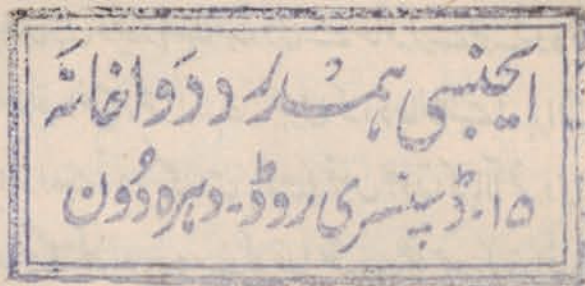 ایجنسی ہمدرد دواخانہ
۱۵-ڈسپنسری روڈ-دہرہ دُون